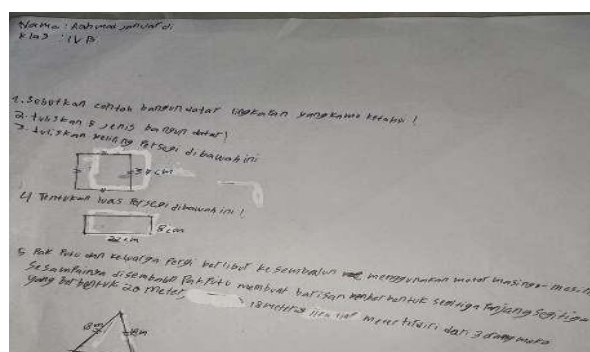 Nama : Rahmad januardi
Klas : IV B
1. Sebutkan contoh bangun datar lingkaran yang kamu ketahui !
2. tuliskan 8 jenis bangun datar!
3. tuliskan keliling Persegi dibawah ini
38 cm
4 Tentukan luas Persegi dibawah ini !
8 cm
22 cm
5 Pak Putu dan keluarga Pergi berlibur ke sembalun menggunakan motor masing-masing
Sesampainya disembalun Pak Putu membuat barisan berbentuk segitiga Panjang segitiga
yang berbentuk 20 meter, 18 meter meter terdiri dari 3 orang maka
8m